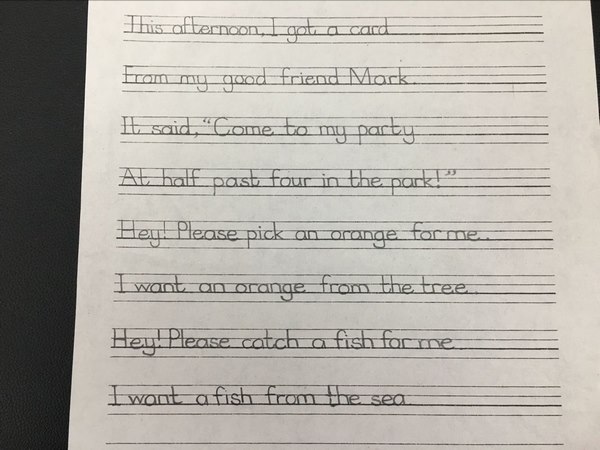 This afternoon, I got a card
From my good friend Mark.
It said, "Come to my party
At half past four in the park!"
Hey! Please pick an orange for me.
I want an orange from the tree.
Hey! Please catch a fish for me
I want a fish from the sea.